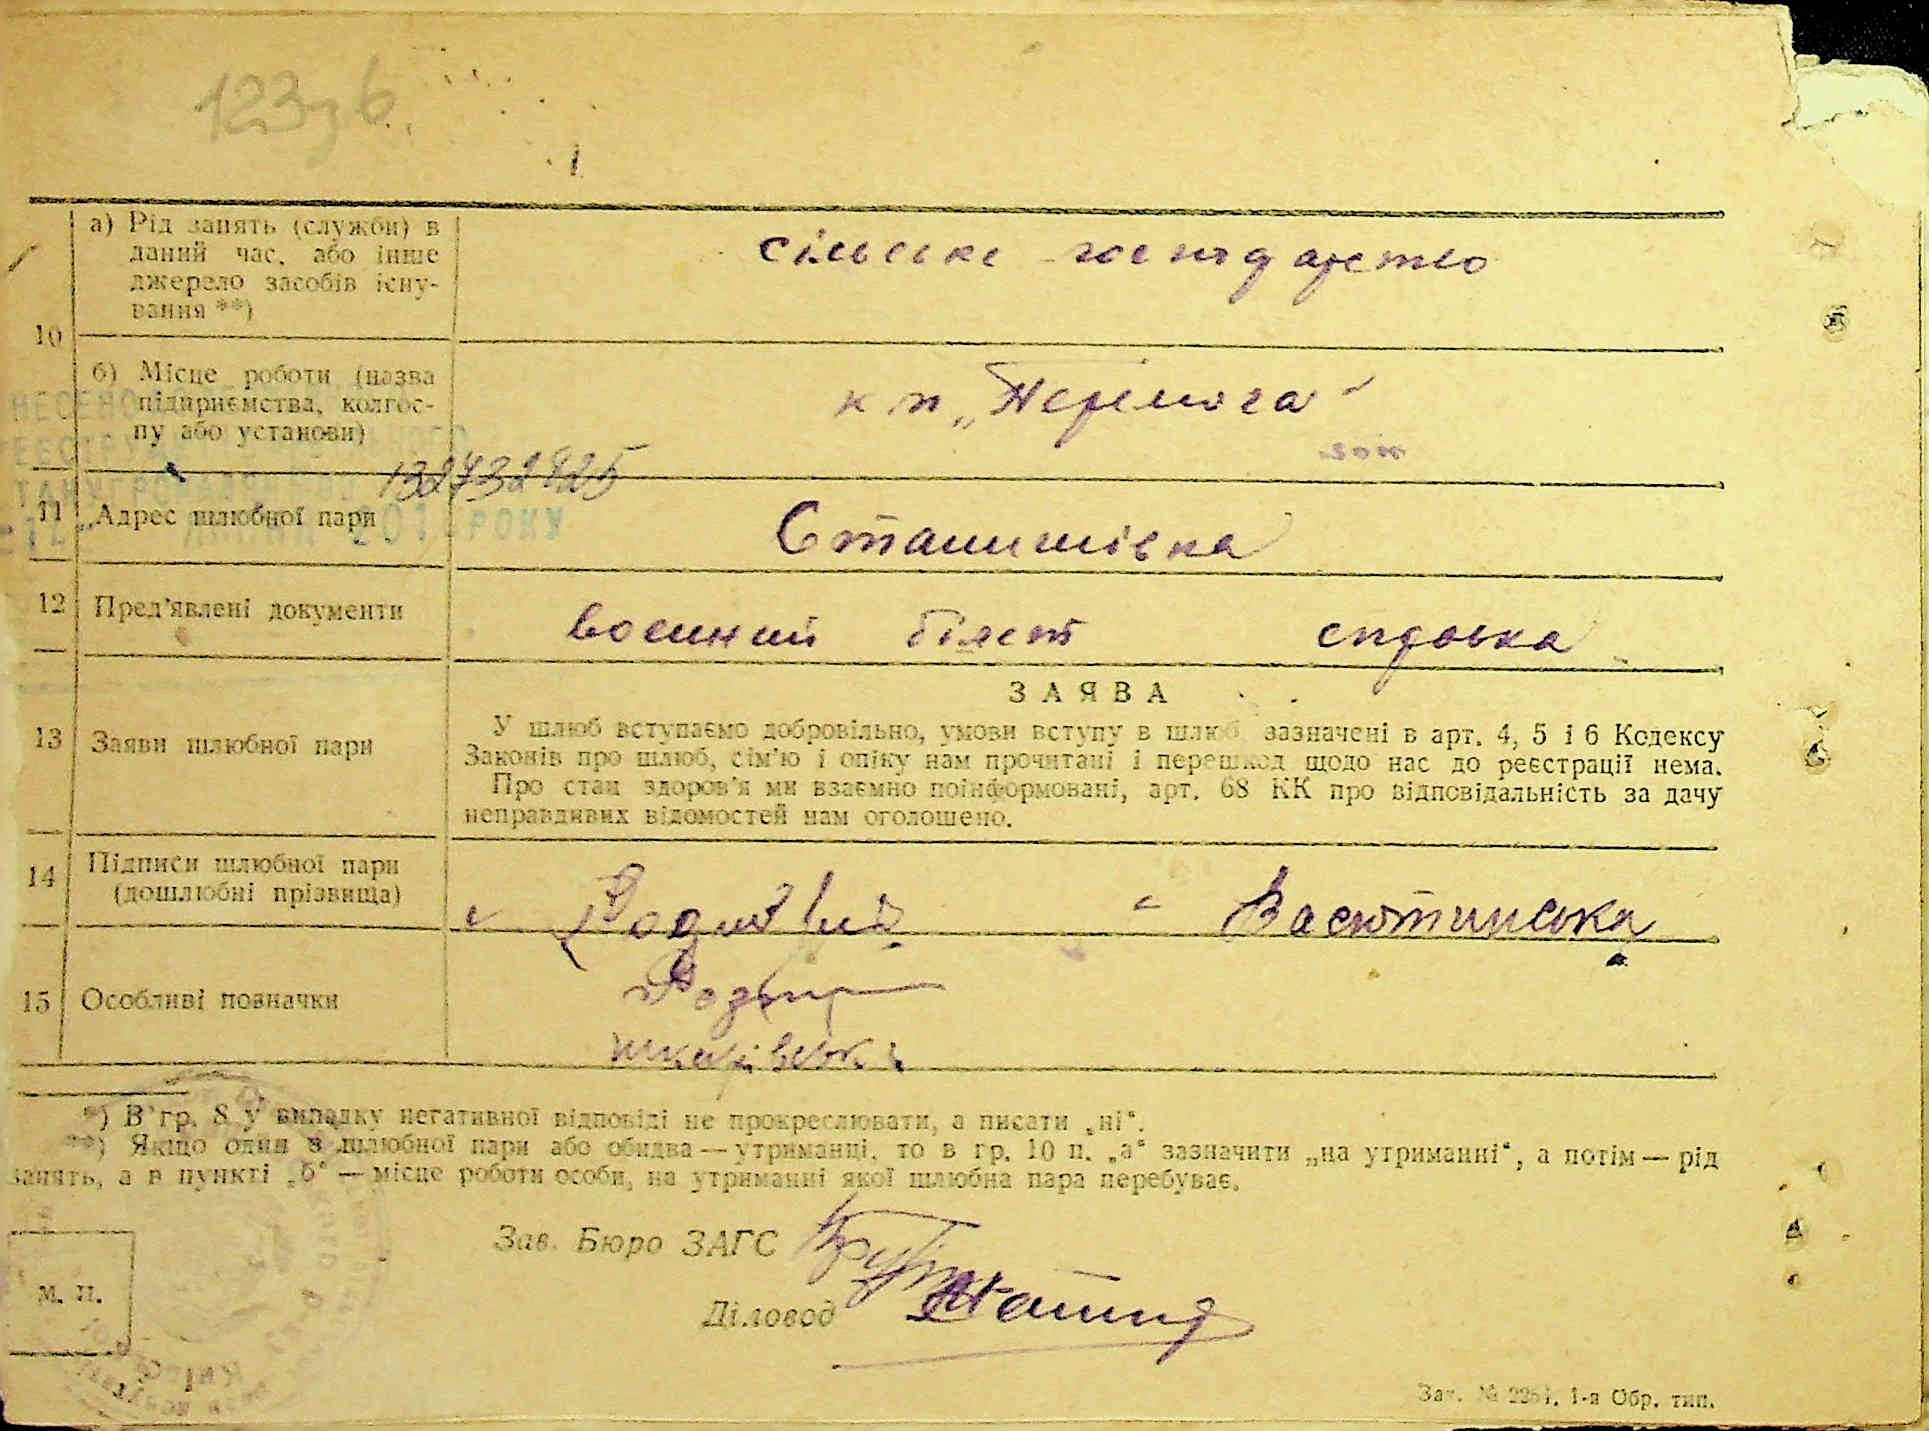 а) Рід занять (служби) в
даний час, або інше
джерело засобів існу-
вання **)
сільське господарство
10
б) Місце роботи (назва
підприємства, колгос-
пу або установи)
к п „Перемога"
132732925
11 Адрес шлюбної пари
Станишівка
12 Пред'явлені документи
военний білєт справка
ЗАЯВА
13 Заяви шлюбної пари
У шлюб вступаємо добровільно, умови вступу в шлюб зазначені в арт. 4, 5 і 6 Кодексу
Законів про шлюб, сім'ю і опіку нам прочитані і перешкод щодо нас до реєстрації нема.
Про стан здоров'я ми взаємно поінформовані, арт. 68 КК про відповідальність за дачу
неправдивих відомостей нам оголошено.
14 Підписи шлюбної пари
(дошлюбні прізвища)
Васютинська
15 Особливі позначки
*) В гр. 8 у випадку негативної відповіді не прокреслювати, а писати „ні".
**) Якщо один з шлюбної пари або обидва — утриманці, то в гр. 10 п. „а" зазначити „на утриманні", а потім — рід
занять, а в пункті „б" — місце роботи особи, на утриманні якої шлюбна пара перебуває.
Зав. Бюро ЗАГС
Діловод
М. П.
Зак. № 2264. 1-а Обр. тип.